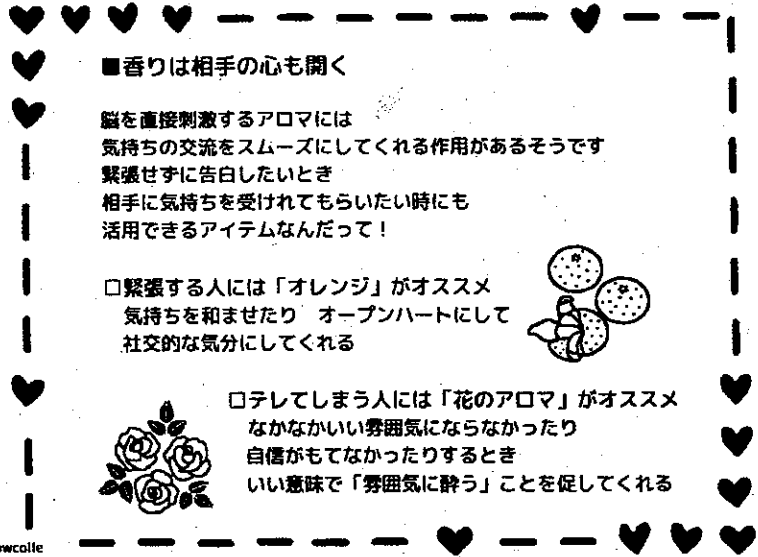 ■香りは相手の心も開く
脳を直接刺激するアロマには
気持ちの交流をスムーズにしてくれる作用があるそうです
緊張せずに告白したいとき
相手に気持ちを受けれてもらいたい時にも
活用できるアイテムなんだって！
□緊張する人には「オレンジ」がオススメ
気持ちを和ませたり　オープンハートにして
社交的な気分にしてくれる
□テレてしまう人には「花のアロマ」がオススメ
なかなかいい雰囲気にならなかったり
自信がもてなかったりするとき
いい意味で「雰囲気に酔う」ことを促してくれる
owcolle